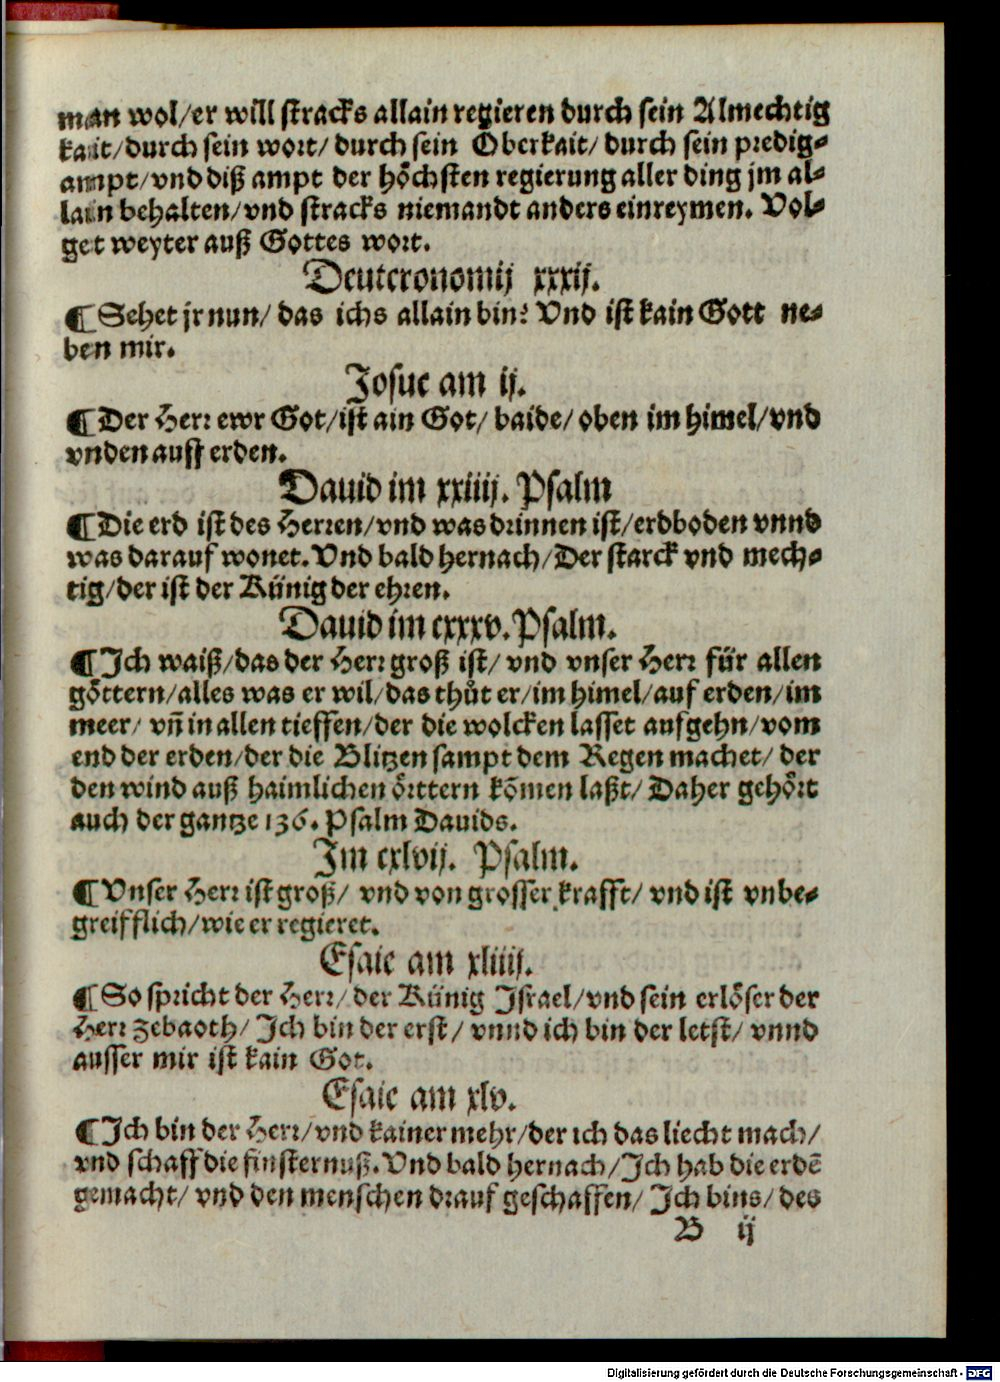 man wol/er will stracks allain regieren durch sein Almechtig
kait/durch sein wort/ durch sein Oberkait/ durch sein predig⸗
ampt/vnd diß ampt der höchsten regierung aller ding jm al⸗
lain behalten/vnd stracks niemandt anders einreymen. Vol⸗
get weyter auß Gottes wort.
Deuteronomij xxxij.
¶ Sehet jr nun/ das ichs allain bin? Vnd ist kain Gott ne⸗
ben mir.
Josue am ij.
¶ Der Herr ewr Got/ist ain Got/ baide/ oben im himel/vnd
vnden auff erden.
Dauid im xxiiij. Psalm
¶ Die erd ist des Herren/vnd was drinnen ist/erdboden vnnd
was darauf wonet. Vnd bald hernach/Der starck vnd mech⸗
tig/der ist der Künig der ehren.
Dauid im cxxxv. Psalm.
¶ Ich waiß/das der Herr groß ist/ vnd vnser Herr für allen
göttern/alles was er wil/das thůt er/im himel/auf erden/im
meer/ vñ in allen tieffen/der die wolcken lasset aufgehn/vom
end der erden/der die Blitzen sampt dem Regen machet/ der
den wind auß haimlichen örttern kõmen laßt/ Daher gehört
auch der gantze 136. Psalm Dauids.
Im cxlvij. Psalm.
¶ Vnser Herr ist groß/ vnd von grosser krafft/ vnd ist vnbe⸗
greifflich/wie er regieret.
Esaie am xliiij.
¶ So spricht der Herr/der Künig Israel/vnd sein erlöser der
Herr zebaoth/ Ich bin der erst/ vnnd ich bin der letst/ vnnd
ausser mir ist kain Got.
Esaie am xlv.
¶ Ich bin der Herr/vnd kainer mehr/der ich das liecht mach/
vnd schaff die finsternuß. Vnd bald hernach/Ich hab die erdẽ
gemacht/ vnd den menschen drauf geschaffen/ Ich bins/ des
B ij
Digitalisierung gefördert durch die Deutsche Forschungsgemeinschaft - DFG